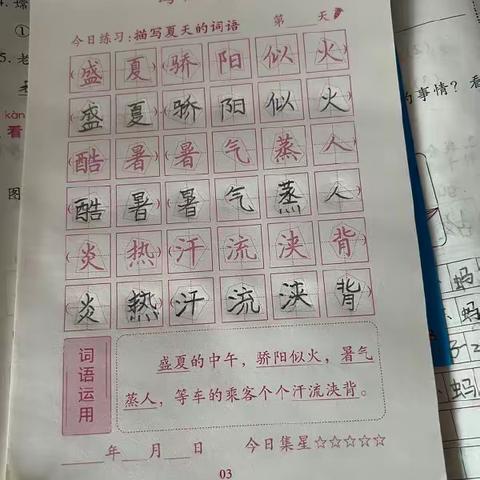 今日练习:描写夏天的词语 第___天
(盛夏)(骄阳似火)
(盛夏)(骄阳似火)
(酷暑)(暑气蒸人)
(酷暑)(暑气蒸人)
(炎热)(汗流浃背)
(炎热)(汗流浃背)
词语运用
盛夏的中午,骄阳似火,暑气
蒸人,等车的乘客个个汗流浃背。
___年___月___日 今日集星☆☆☆☆☆
03
kàn
看
图
的事情?看
蚂
蚂
蚂